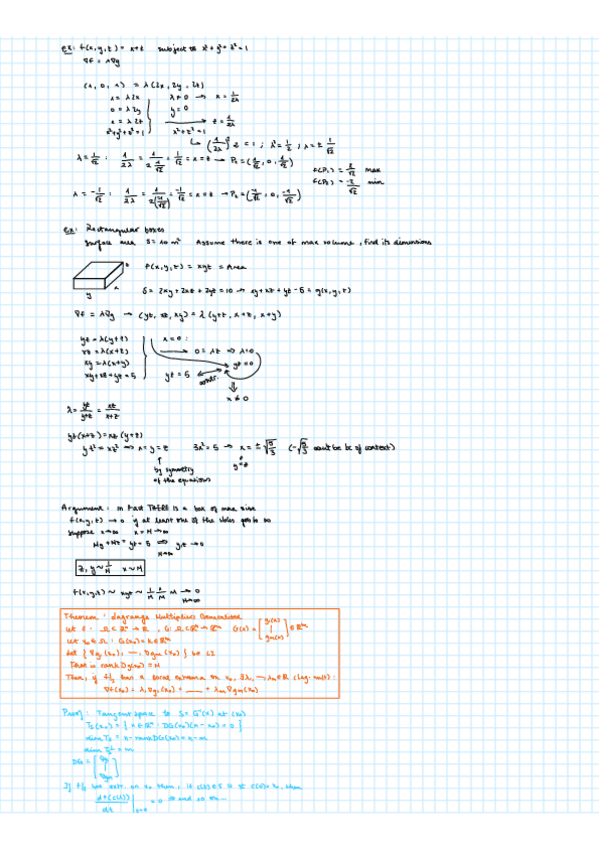 ex: f(x,y,z) = x+z subject to x²+y²+z²=1
∇f = λ∇g
(1, 0, 1) = λ(2x, 2y, 2z)
1 = λ2x λ≠0 → x = 1/2λ
0 = λ2y y=0
1 = λ2z → z = 1/2λ
x²+y²+z²=1 x²+z²=1
↳ (1/2λ)² 2 = 1 ; λ² = 1/2 ; λ = ± 1/√2
λ = 1/√2 : 1/2λ = 1/(2 1/√2) = 1/√2 = x = z → P₁ = (1/√2, 0, 1/√2)
f(P₁) = 2/√2 max
f(P₂) = -2/√2 min
λ = -1/√2 : 1/2λ = 1/(2(-1/√2)) = -1/√2 = x = z → P₂ = (-1/√2, 0, -1/√2)
ex: Rectangular boxes
Surface area S = 10 m² Assume there is one of max volume, find its dimensions
f(x,y,z) = xyz = Area
S = 2xy + 2xz + 2yz = 10 → xy + xz + yz - 5 = g(x,y,z)
∇f = λ∇g → (yz, xz, xy) = λ(y+z, x+z, x+y)
yz = λ(y+z) x = 0 :
xz = λ(x+z) 0 = λz ⇒ λ=0
xy = λ(x+y) yz = 0
xy+xz+yz = 5 yz = 5 contr.
x ≠ 0
λ = yz/(y+z) = xz/(x+z)
yz(x+z) = xz(y+z)
yz² = xz² ⇒ x = y = z 3x² = 5 → x = ±√(5/3) (-√(5/3) cant be bc of context)
by symmetry
of the equations
y=z
Argument: in fact THERE is a box of max size
f(x,y,z) → 0 if at least one of the sides goes to ∞
suppose x→∞ x = M→∞
My + Mz + yz = 5 ⇒ y,z → 0
M→∞
z, y ~ 1/M x ~ M
f(x,y,z) ~ xyz ~ 1/M 1/M M → 0
M→∞
Theorem: Lagrange Multipliers Generalized
Let f: Ω⊂ℝⁿ → ℝ, G: Ω⊂ℝⁿ → ℝᵐ G(x) = [g₁(x) | gm(x)] ∈ ℝᵐ
Let x₀ ∈ Ω : G(x₀) = k ∈ ℝᵐ
Let {∇g₁(x₀), —, ∇gm(x₀)} be LI
That is rank DG(x₀) = m
Then, if f/s has a local extrema on x₀, ∃λ₁ — λm ∈ ℝ (Lag. mult):
∇f(x₀) = λ₁∇g₁(x₀) + ___ + λm∇gm(x₀)
Proof: Tangent space to S = G⁻¹(k) at (x₀)
Ts(x₀) = {x ∈ ℝⁿ : DG(x₀)(x - x₀) = 0}
dim Ts = n - rank DG(x₀) = n - m
dim Ts⊥ = m
DG = [∇g₁ | ∇gm]
If f/s has extr. on x₀ then, if c(t) ∈ S is st c(0) = x₀, then
df(c(t))/dt |t=0 = 0